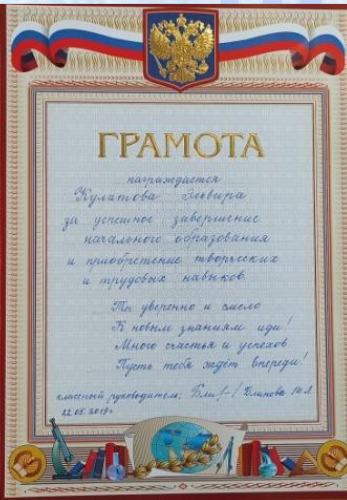 ГРАМОТА
награждается
Кулатова Эльвира
за успешное завершение
начального образования
и приобретение творческих
и трудовых навыков.
Ты уверенно и смело
К новым знаниям иди!
Много счастья и успехов
Пусть тебя ждёт впереди!
классный руководитель: /Блинова
22.05.2019г.